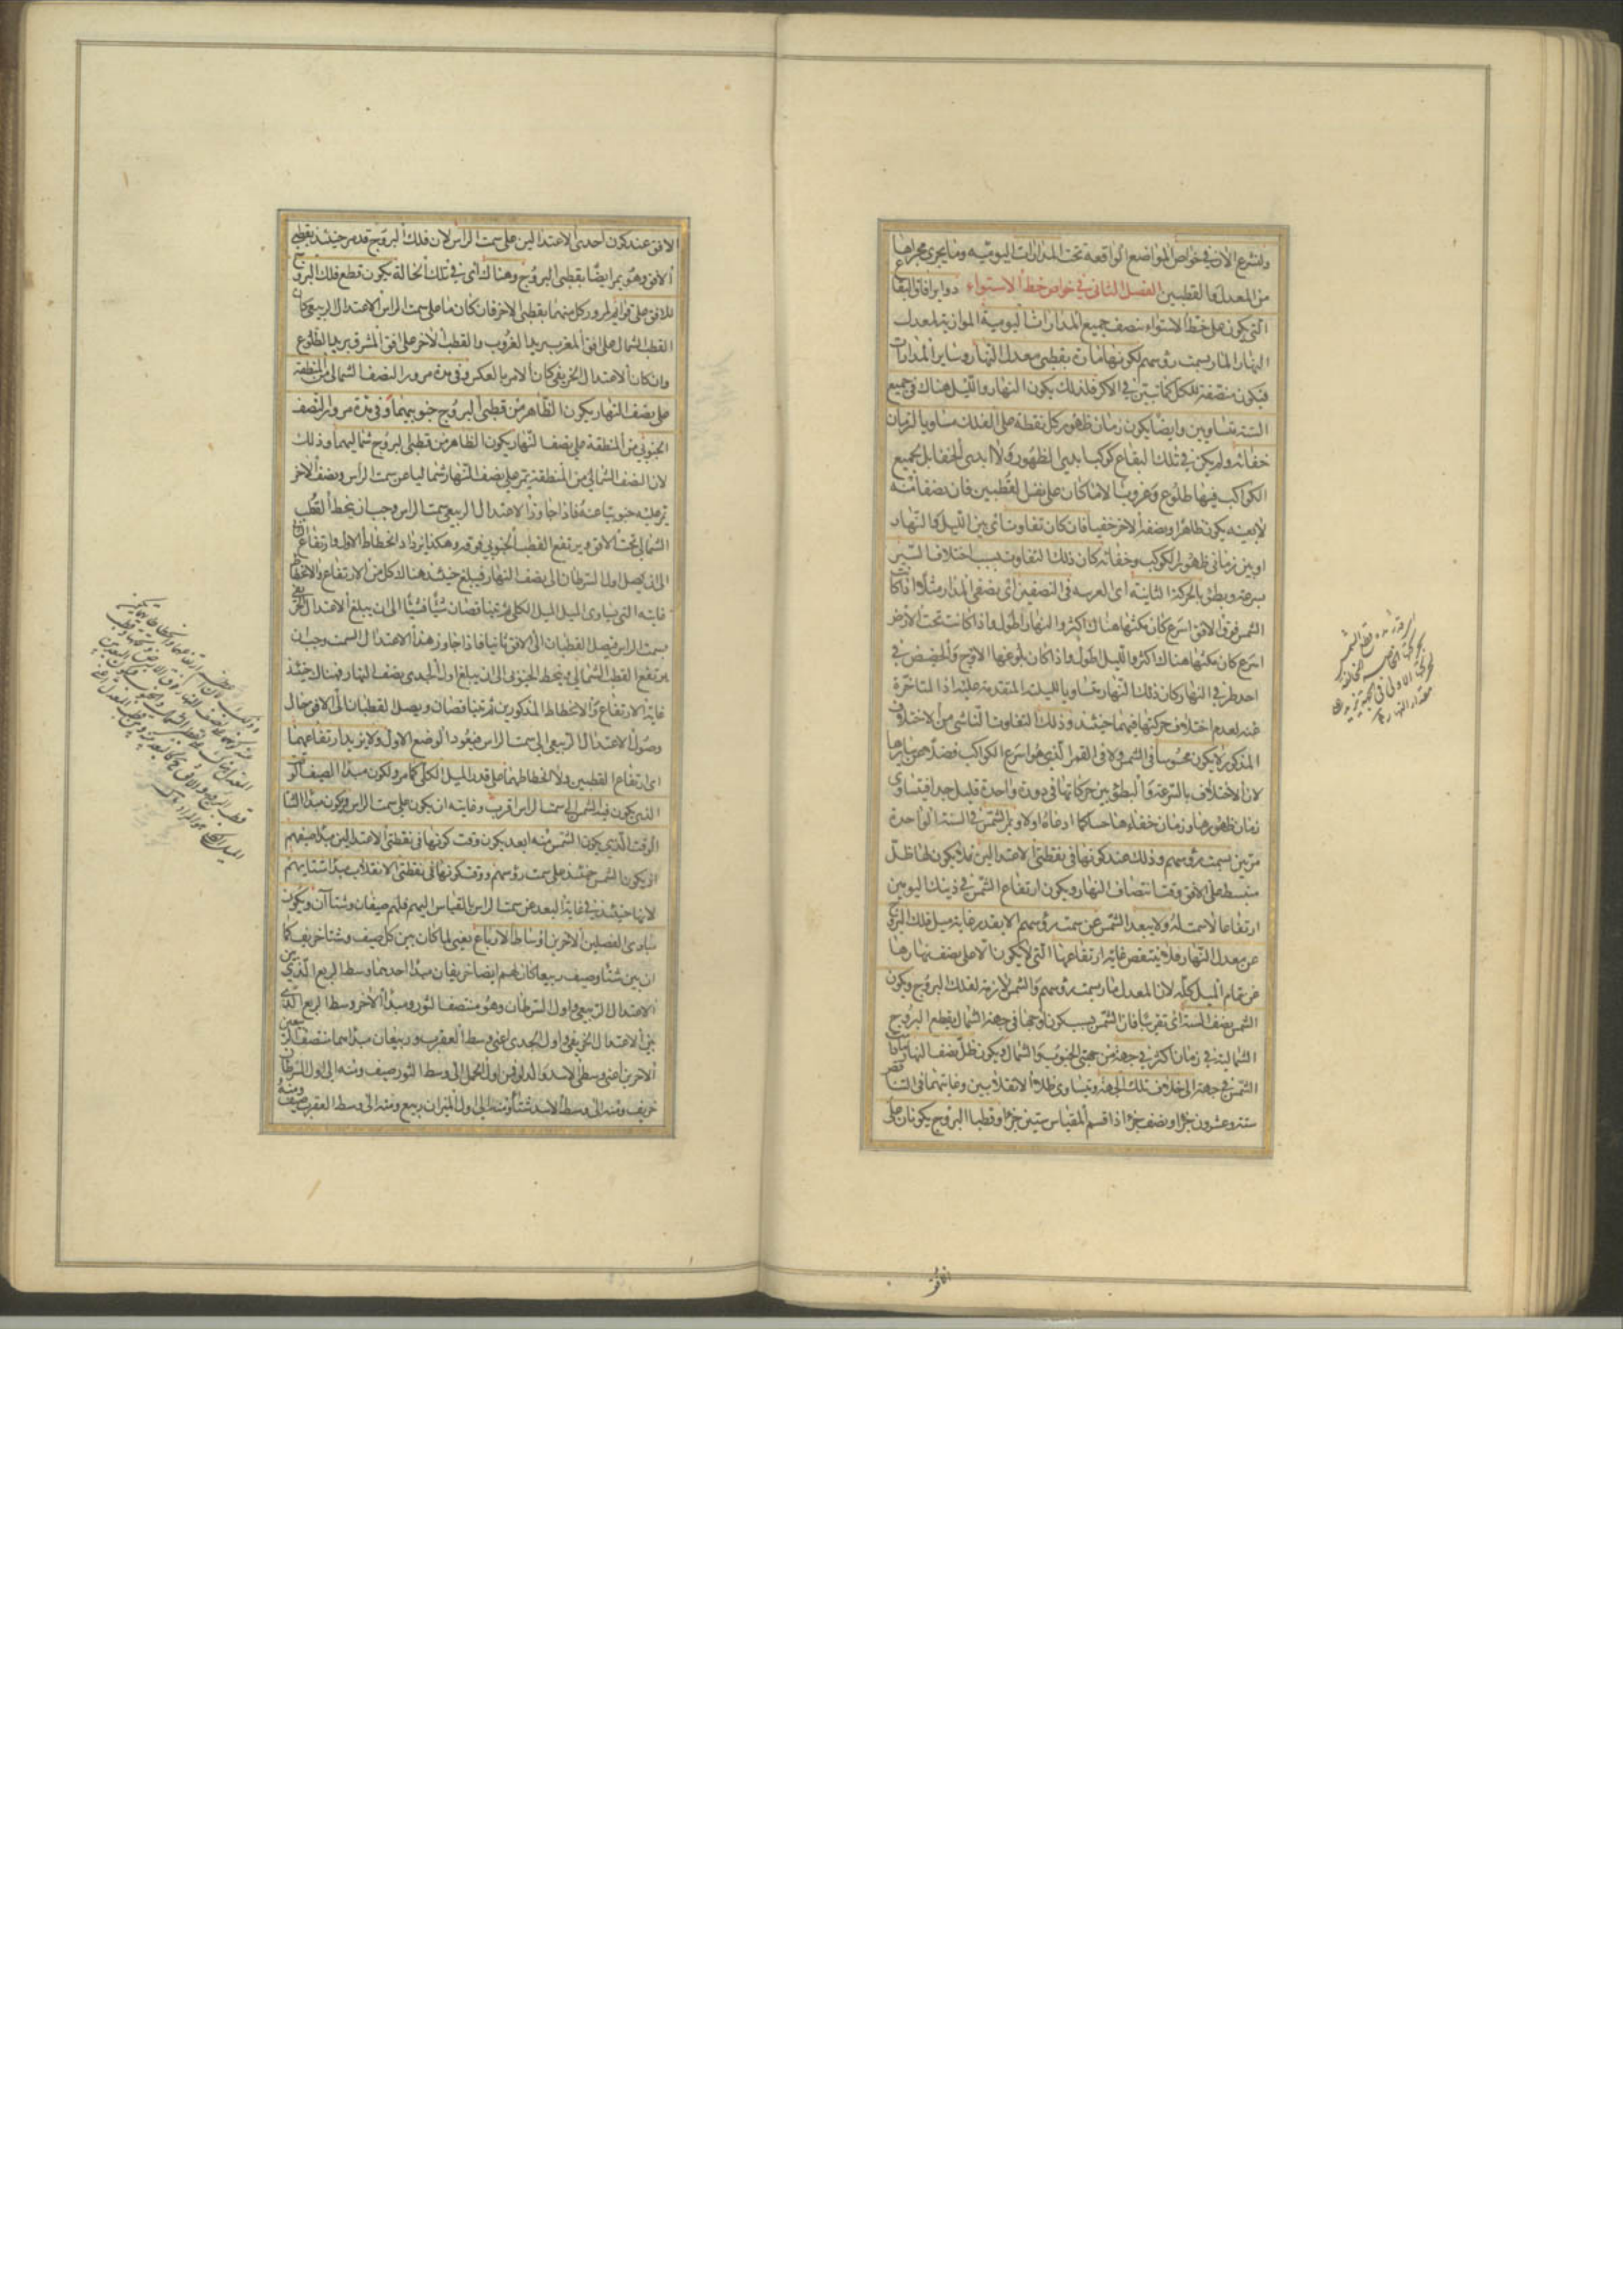 ولنشرع الآن في خواص المواضع الواقعة تحت المدارات اليومية وما يجري مجراها
من المعدل والقطبين الفصل الثاني في خواص خط الاستواء دوائر آفاق البقاع
التي يكون على خط الاستواء ينصف جميع المدارات اليومية الموازية لمعدل
النهار المار بسمت رؤسهم لكونها مارة بقطبي معدل النهار وساير المدارات
فيكون منصفة للكل كما تبين في الاكر فلذلك يكون النهار والليل هناك في جميع
السنة متساويين وايضا يكون زمان ظهور كل نقطة على الفلك مساويا لزمان
خفائه ولم يكن في تلك البقاع كوكب ابدي الظهور ولا ابدي الخفا بل لجميع
الكواكب فيها طلوع وغروب الا ما كان على نفس القطبين فان نصفا منه
لا بعينه يكون ظاهرا ونصفه الآخر خفيا فان كان تفاوت اي بين الليل والنهار
او بين زماني ظهور الكوكب وخفائه كان ذلك التفاوت بسبب اختلاف السير
بسرعة وبطؤ بالحركة الثانية اي الغربية في النصفين اي نصفي المدار مثلا اذا كانت
الشمس فوق الافق اسرع كان مكثها هناك اكثر والنهار اطول واذا كانت تحت الارض
اسرع كان مكثها هناك اكثر والليل اطول واذا كان بلوغها الاوج والحضيض في
احد طرفي النهار كان ذلك النهار متساويا لليلته المتقدمة عليه او المتاخرة
عنه لعدم اختلاف حركتها فيهما حينئذ وذلك التفاوت الناشي من الاختلاف
المذكور لا يكون محسوسا في الشمس ولا في القمر الذي هو اسرع الكواكب فضلا عن سايرها
لان الاختلاف بالسرعة والبطؤ بين حركاتها في دورة واحدة قليل جدا فيتساوى
زمان ظهورها وزمان خفاءها حسا كما ادعاه اولا ويمر الشمس في السنة الواحدة
مرتين بسمت رؤسهم وذلك عند كونها في نقطتي الاعتدالين فلا يكون لها ظل
منبسط على الافق وقت انتصاف النهار ويكون ارتفاع الشمس في ذينك اليومين
ارتفاعا لا سمت له ولا يبعد الشمس عن سمت رؤسهم الا بقدر غاية ميل فلك البروج
عن معدل النهار فلا ينتقص غاية ارتفاعها التي لا يكون الا على نصف نهارها
عن تمام الميل كله لان المعدل مار بسمت رؤسهم والشمس لازمة لفلك البروج ويكون
الشمس نصف السنة اي تقريبا فان الشمس بسبب كون اوجها في جهة الشمال يقطع البروج
الشمالية في زمان اكثر في جهة من جهتي الجنوب والشمال ويكون ظل نصف النهار
الشمس في جهة الى خلاف تلك الجهة ويتساوى ظلا الانقلابين وغايتهما في
ستة وعشرون جزا ونصف جزا اذا قسم المقياس ستين جزا وقطبا البروج يكونان على
اسرع
الشمس
بحركتها الخاصة المخالفة
للحركة الاولى في الجهة
مقدار النهار
الافق
الافق عند كون احدى الاعتدالين على سمت الراس لان فلك البروج قد مر حينئذ بقطبي
الافق وهو يمر ايضا بقطبي البروج وهناك اي في تلك الحالة يكون قطع فلك البروج
للافق على قوائم لمرور كل منهما بقطبي الآخر فان كان ما على سمت الراس الاعتدال الربيعي كان
القطب الشمالي على افق المغرب يريد الغروب والقطب الآخر على افق المشرق يريد الطلوع
وان كان الاعتدال الخريفي كان الامر بالعكس وفي مدة مرور النصف الشمالي من المنطقة
على نصف النهار يكون الظاهر من قطبي البروج جنوبيهما وفي مدة مرور النصف
الجنوبي من المنطقة على نصف النهار يكون الظاهر من قطبي البروج شماليهما وذلك
لان النصف الشمالي من المنطقة يمر على نصف النهار شماليا عن سمت الراس ونصف الآخر
يمر عليه جنوبيا عنه فاذا جاوز الاعتدال الربيعي سمت الراس وجب ان ينحط القطب
الشمالي تحت الافق ويرتفع القطب الجنوبي فوقه وهكذا يزداد انحطاط الاول وارتفاع الثاني
الى ان يصل اول السرطان الى نصف النهار فيبلغ حينئذ هناك كل من الارتفاع والانحطاط
غايته التي تساوى الميل الكلي ثم يتناقصان شيئا فشيئا الى ان يبلغ الاعتدال الخريفي
سمت الراس فيصل القطبان الى الافق ثانيا فاذا جاوز هذا الاعتدال السمت وجب ان
يرتفع القطب الشمالي وينحط الجنوبي الى ان يبلغ اول الجدي نصف النهار فهناك حينئذ
غاية الارتفاع والانحطاط المذكورين ثم يتناقصان ويصل القطبان الى الافق حال
وصول الاعتدال الربيعي الى سمت الراس فيعود الوضع الاول ولا يزيد ارتفاعهما
اي ارتفاع القطبين ولا انحطاطهما على قدر الميل الكلي كما مر ولكون مبدأ الصيف
الذي يكون فيه الشمس الى سمت الراس اقرب وغايته ان يكون على سمت الراس ويكون مبدأ الشتا
الوقت الذي يكون الشمس منه ابعد يكون وقت كونها في نقطتي الاعتدالين مبدأ صيفهم
اذ يكون الشمس حينئذ على سمت رؤسهم ووقت كونها في نقطتي الانقلاب مبدأ شتايهم
لانها حينئذ في غاية البعد عن سمت الراس بالقياس اليهم فلهم صيفان وشتاآن ويكون
مبادى الفصلين الآخرين اوساط الارباع يعني لما كان بين كل صيف وشتا خريف كما
ان بين شتا وصيف ربيعا كان لهم ايضا خريفان مبدأ احدهما وسط الربع الذي بين
الاعتدال الربيعي واول السرطان وهو منتصف الثور ومبدأ الآخر وسط الربع الذي
بين الاعتدال الخريفي واول الجدى اعني وسط العقرب وربيعان مبدأهما منتصف الربعين
الآخرين اعني وسطي الاسد والدلو فمن اول الحمل الى وسط الثور صيف ومنه الى اول السرطان
خريف ومنه الى وسط الاسد شتا ومنه الى اول الميزان ربيع ومنه الى وسط العقرب صيف ومنه